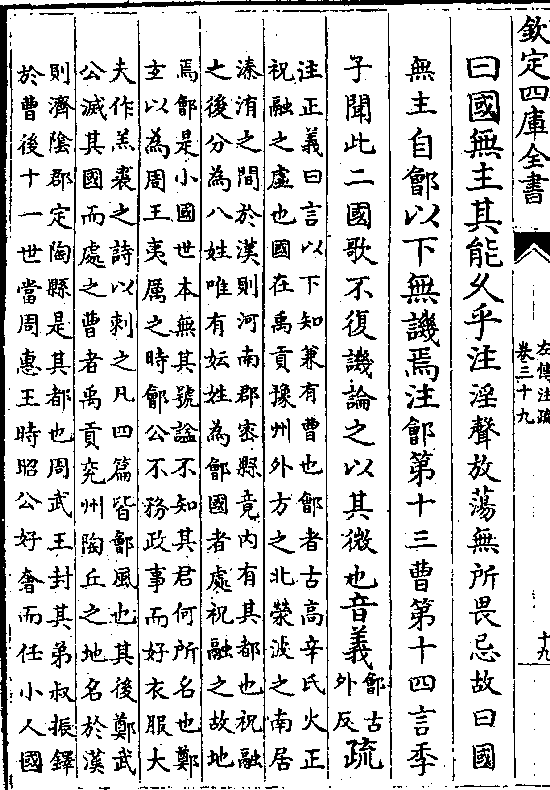 欽定四庫全書
左傳注疏
卷三十九
十九
曰國無主其能久乎注淫聲放蕩無所畏忌故曰國
無主自鄶以下無譏焉注鄶第十三曹第十四言季
子聞此二國歌不復譏論之以其微也音義鄶古外反疏
注正義曰言以下知兼有曹也鄶者古高辛氏火正
祝融之虛也國在禹貢豫州外方之北滎波之南居
溱洧之間於漢則河南郡密縣竟內有其都也祝融
之後分為八姓唯有妘姓為鄶國者處祝融之故地
焉鄶是小國世本無其號諡不知其君何所名也鄭
玄以為周王夷厲之時鄶公不務政事而好衣服大
夫作羔裘之詩以刺之凡四篇皆鄶風也其後鄭武
公滅其國而處之曹者禹貢兗州陶丘之地名於漢
則濟陰郡定陶縣是其都也周武王封其弟叔振鐸
於曹後十一世當周惠王時昭公好奢而任小人國